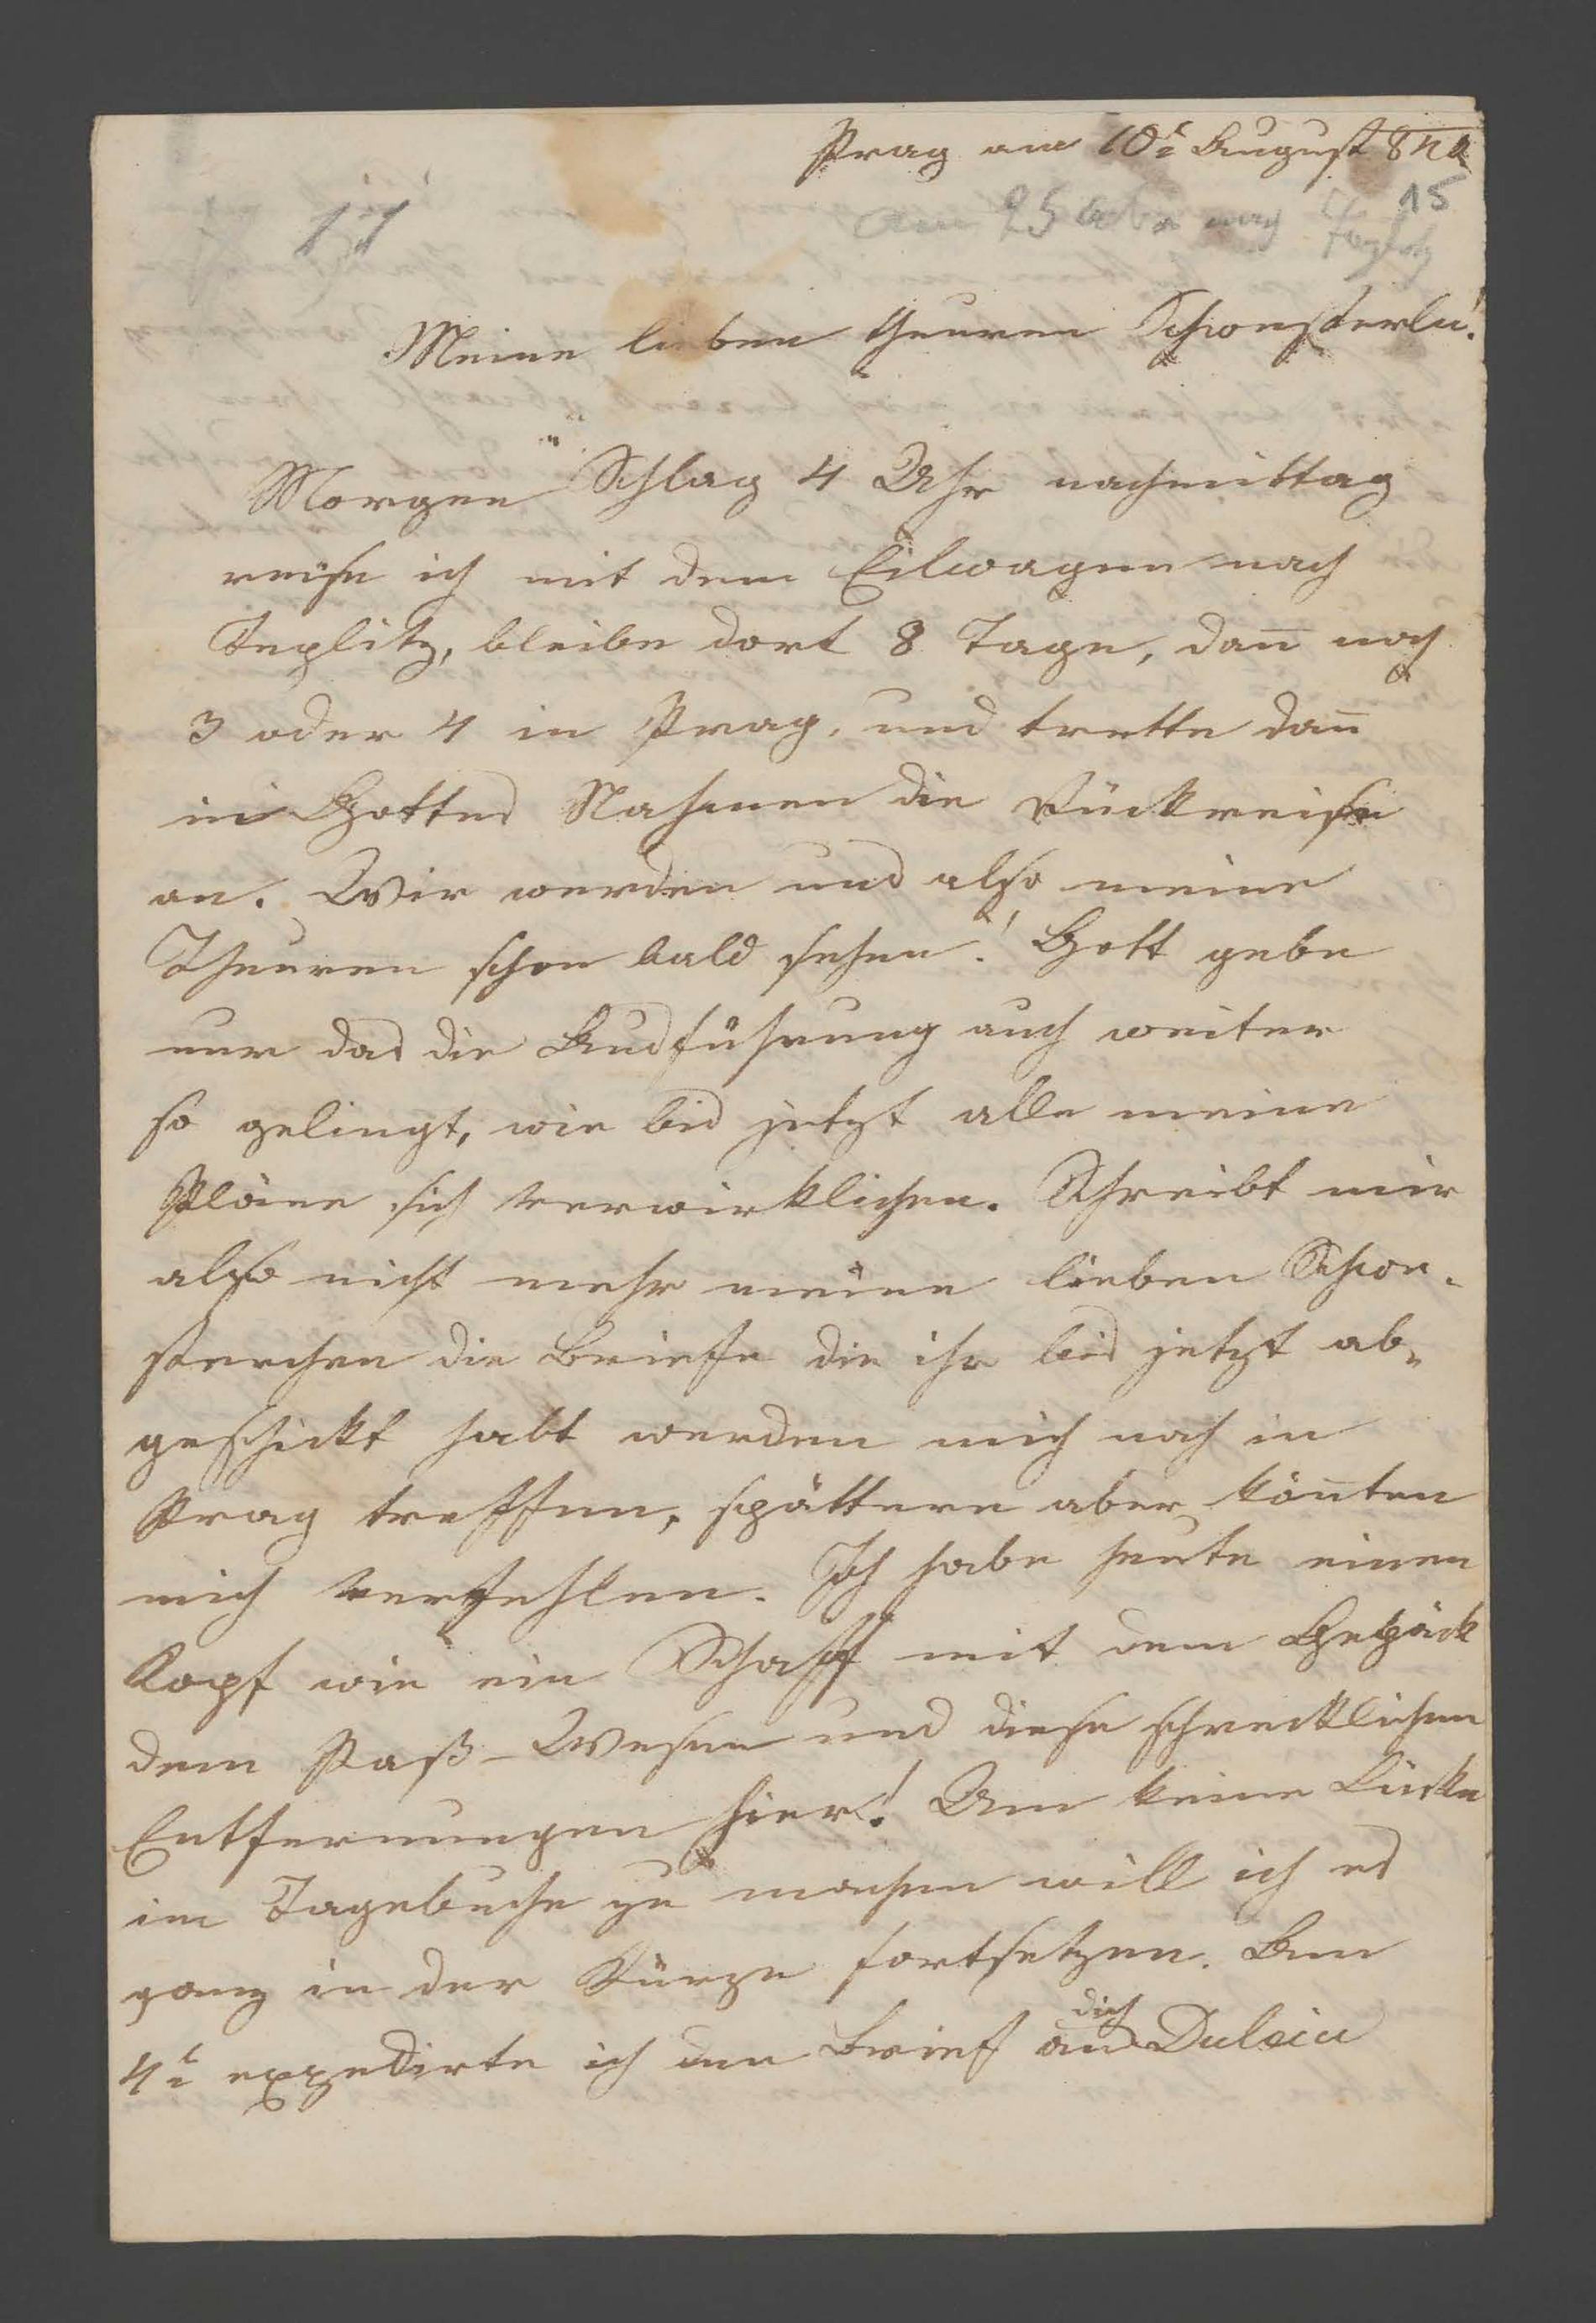 Prag am 10t August 84
15
11
am 25
Meine lieben theuren Schwesterln!
Morgen Schlag 4 Uhr nachmittag
reise ich mit dem Eilwagen nach
Teplitz, bleibe dort 8 Tage, dan̄ noch
3 oder 4 in Prag, und trette dan̄
in Gottes Nahmen die Rückreise
an. Wir werden uns also meine
Theuren schon bald sehen! Gott gebe
nur das die Ausführung auch weiter
so gelingt, wie bis jetzt alle meine
Pläne sich verwirklichen. Schreibt mir
also nicht mehr meine lieben Schwe-
sterchen die Briefe die ihr bis jetzt ab-
geschickt habt werden mich noch in
Prag treffen, spättere aber kön̄ten
mich verfehlen. Ich habe heute einen
Kopf wie ein Schaff mit dem Gepäck
dem Paß-Wesen und diese schrecklichen
Entfernungen hier! Um keine Lücke
im Tagebuche zu machen will ich es
ganz in der Kürze fortsetzen. Am
4t expedirte ich den Brief an dich Dulcia